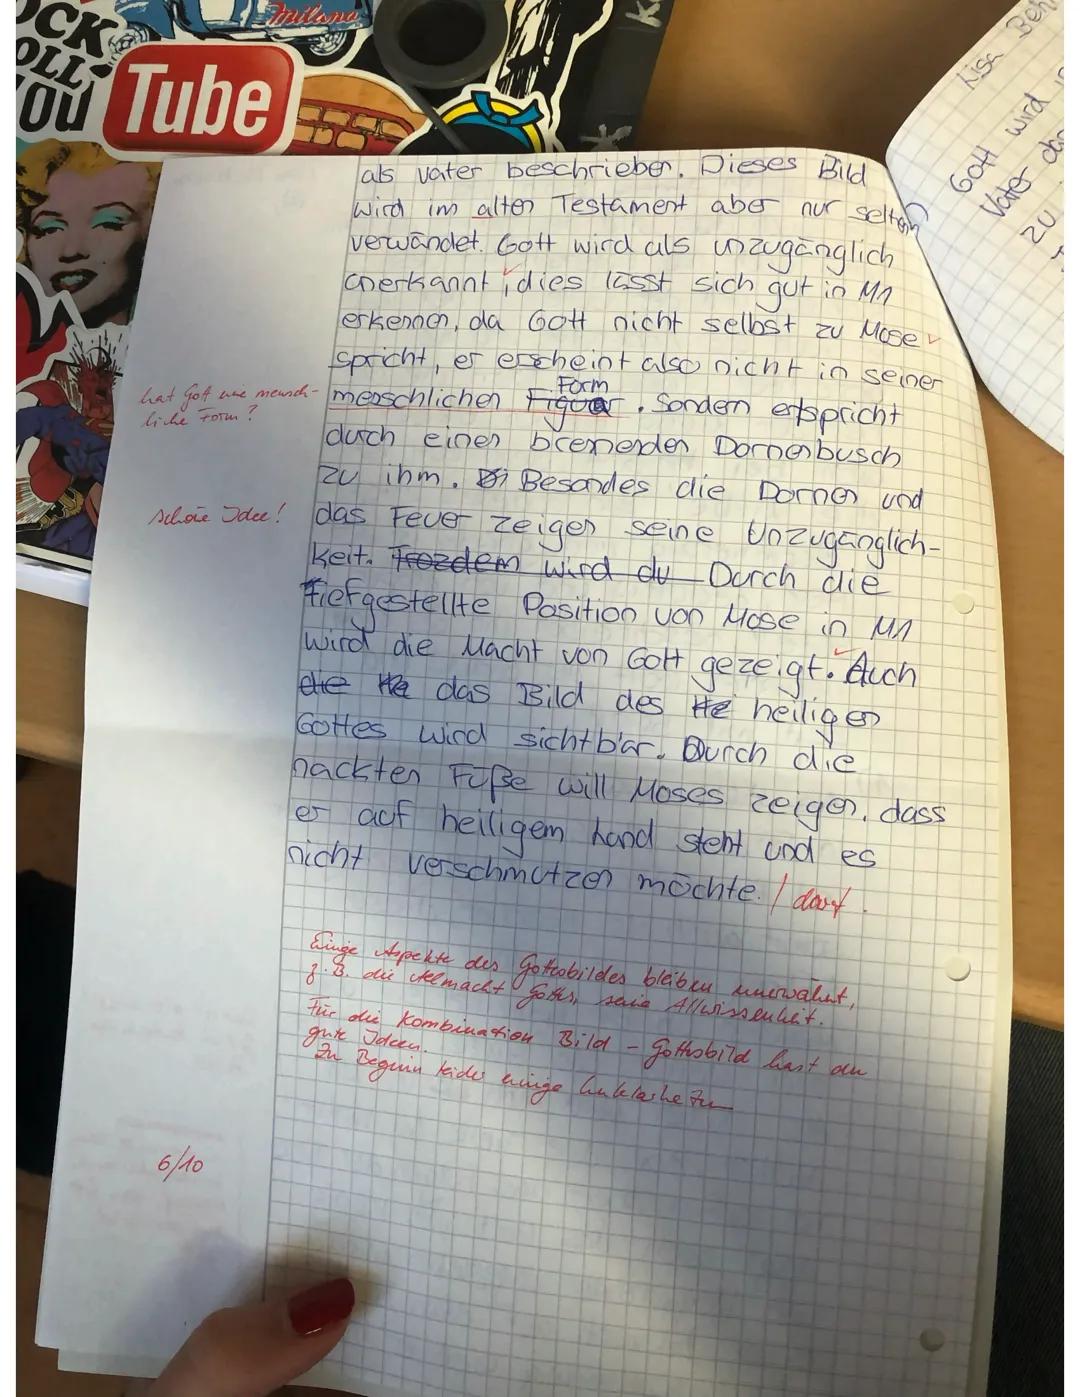 OCK
OLL
YOU Tube
Milano
Lisa Beh
Gott wird
Vater das
zu
als Vater beschrieben. Dieses Bild
wird im alten Testament aber nur selten
verwändet. Gott wird als unzugänglich
anerkannt, dies lässt sich gut in M1
erkennen, da Gott nicht selbst zu Mose
spricht, er erscheint also nicht in seiner
Form
menschlichen Figur. Sondern entspricht
hat Gott eine mensch-
liche Form?
durch einen brennenden Dornenbusch
zu ihm. Besondes die Dornen und
schöne Idee!
das Feuer zeigen seine Unzugänglich-
keit. Trozdem wird du Durch die
tiefgestellte Position von Mose in M1
wird die Macht von Gott gezeigt. Auch
die He das Bild des He heiligen
Gottes wird sichtbar. Durch die
nackten Füße will Moses zeigen, dass
er auf heiligem Land steht und es
nicht verschmutzen möchte. / darf.
Einige Aspekte des Gottesbildes bleiben unerwähnt,
z.B. die Allmacht Gottes, seine Allwissenheit.
Für die Kombination Bild - Gottesbild hast du
gute Ideen.
Zu Beginn leider einige Unklarheiten
6/10